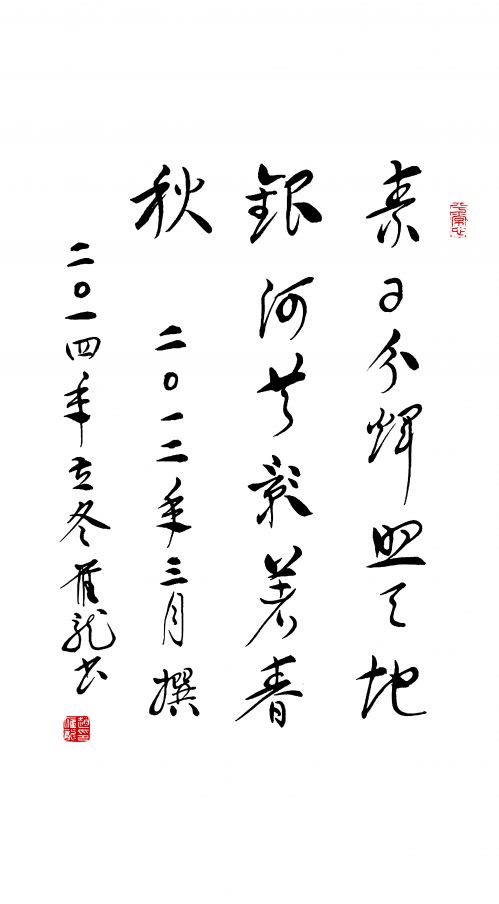 素月分煇照天地
銀河共影著春
秋 二〇一二年三月撰
二〇一四年立冬龍书